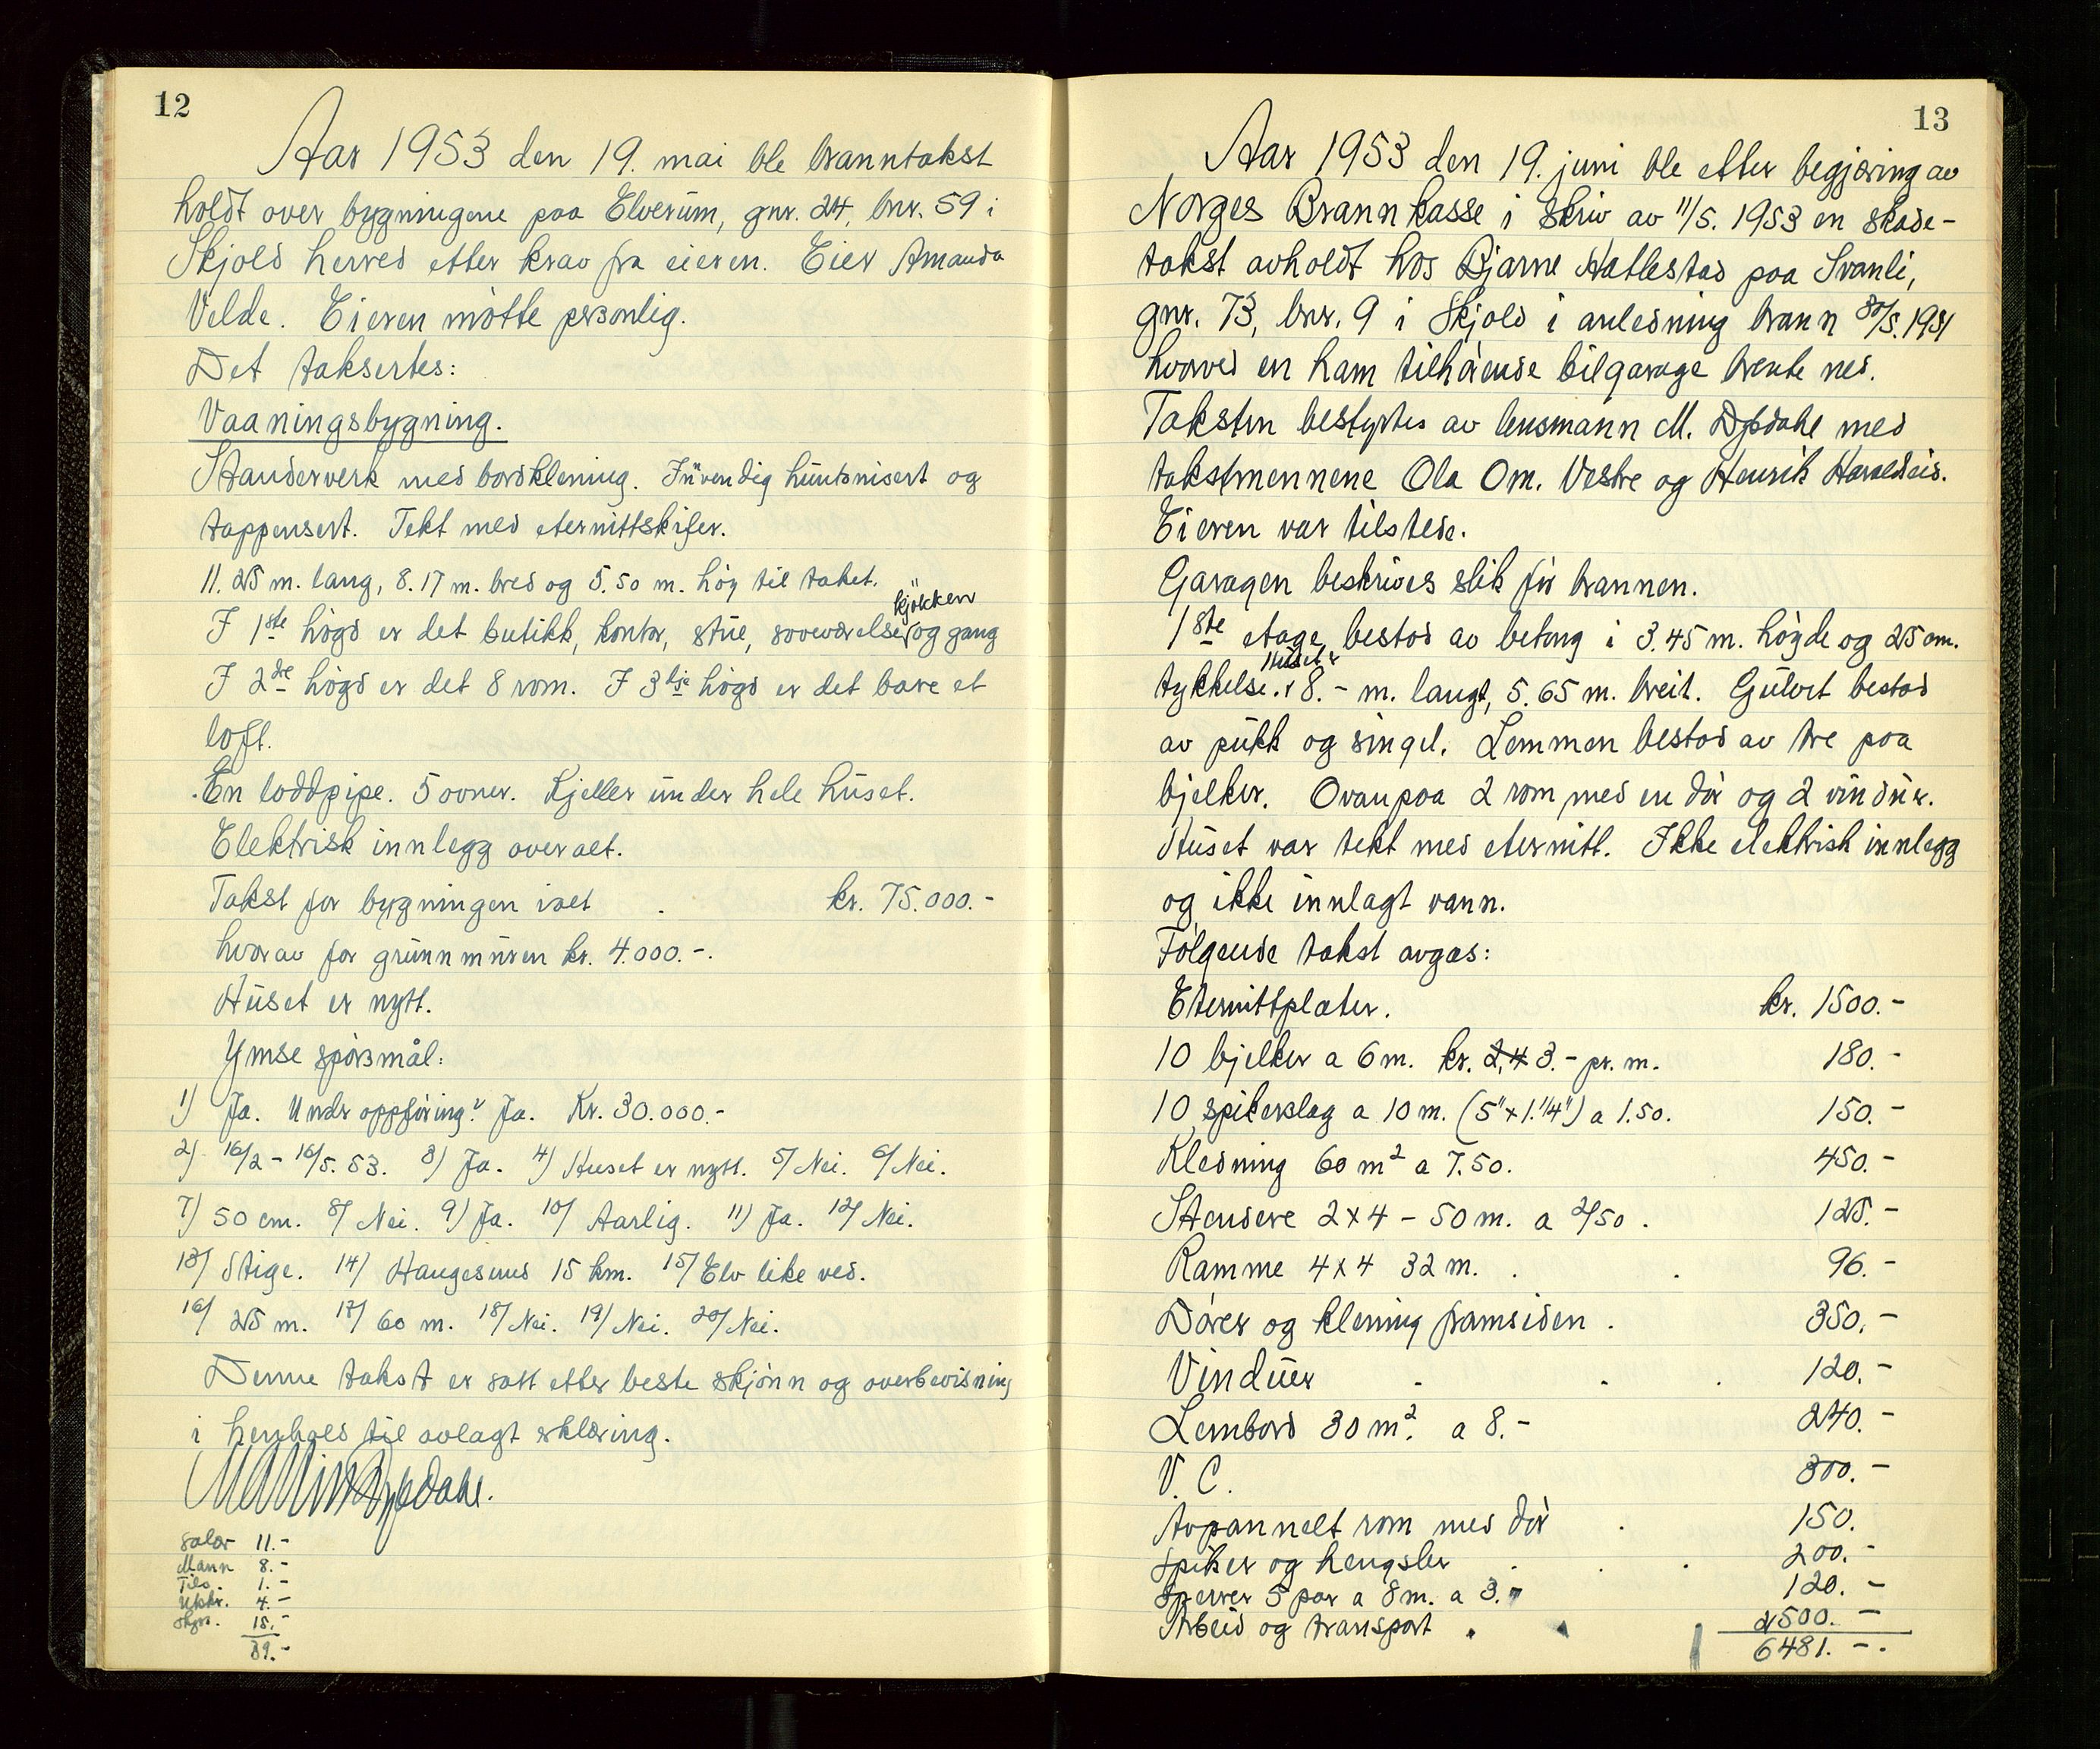 12
Aar 1953 den 19. mai ble branntakst
holdt over bygningene paa Elverum, gnr. 24, bnr. 59 i
Skjold herred etter krav fra eieren. Eier Amanda
Velde. Eieren møtte personlig.
Det taksertes:
Vaaningsbygning.
Standerverk med bordkledning. Innvendig huntonisert og
tappensert. Tekt med eternittskifer.
11.25 m. lang, 8.17 m. bred og 5.50 m. høy til taket.
kjøkken
I 1ste høgd er det butikk, kontor, stue, soveværelse, og gang
I 2dre høgd er det 8 rom. I 3dje høgd er det bare et
loft.
En loddpipe. 5 ovner. Kjeller under hele huset.
Elektrisk innlegg overalt.
Takst for bygningen ialt . kr. 75.000.-
hvorav for grunnmuren kr. 4.000.-.
Huset er nytt.
Ymse spørsmål:
1) Ja. Under oppføring? Ja. Kr. 30.000.-
2) 16/2 - 16/5. 53. 3) Ja. 4) Huset er nytt. 5/ Nei. 6/ Nei.
7) 50 cm. 8/ Nei. 9) Ja. 10/ Aarlig. 11) Ja. 12/ Nei.
13/ Stige. 14) Haugesund 15 km. 15/ Elv like ved.
16/ 25 m. 17/ 60 m. 18/ Nei. 19/ Nei. 20/ Nei.
Denne takst er satt etter beste skjønn og overbevisning
i henhold til avlagt erklæring.
Dypdahl.
Salær 11.-
Mann 8.-
Tils. 1.-
Utskr. 4.-
Skys. 15.-
39.-
13
Aar 1953 den 19. juni ble etter begjæring av
Norges Brannkasse i skriv av 11/5. 1953 en skade-
takst avholdt hos Bjarne Hatlestad paa Svanli,
gnr. 73, bnr. 9 i Skjold i anledning brann 30/5. 1951
hvorved en ham tilhørende bilgarage brente ned.
Taksten bestyrtes av lensmann M. Dypdahl med
takstmennene Ola Om. Vestre og Henrik Haraldseid.
Eieren var tilstede.
Garagen beskrives slik før brannen.
1ste etage bestod av betong i 3.45 m. høyde og 25 cm.
Huset er
tykkelse. 8.- m. langt, 5.65 m. breit. Gulvet bestod
av pukk og singel. Lemmen bestod av tre paa
bjelker. Ovanpaa 2 rom med en dør og 2 vinduer.
Huset var tekt med eternitt. Ikke elektrisk innlegg
og ikke innlagt vann.
Følgende takst avgas:
Eternittplater. kr. 1500.-
10 bjelker a 6 m. kr. 2,4 3.- pr. m. 180.-
10 spikerslag a 10 m. (5"x1.1/4") a 1.50. 150.-
Kledning 60 m2 a 7.50. 450.-
Stendere 2x4 - 50 m. a 2/50. 125.-
Ramme 4x4 32 m. . . 96.-
Dører og kledning framsiden . 350.-
Vinduer - . . 120.-
Lembord 30 m2. a 8.- 240.-
V. C. 300.-
Avpannelt rom med dør . 150.
Spiker og hengsler . . . 200.-
Sperrer 5 par a 8 m. a 3.- 120.-
Arbeid og transport . 2500.-
6481.-.